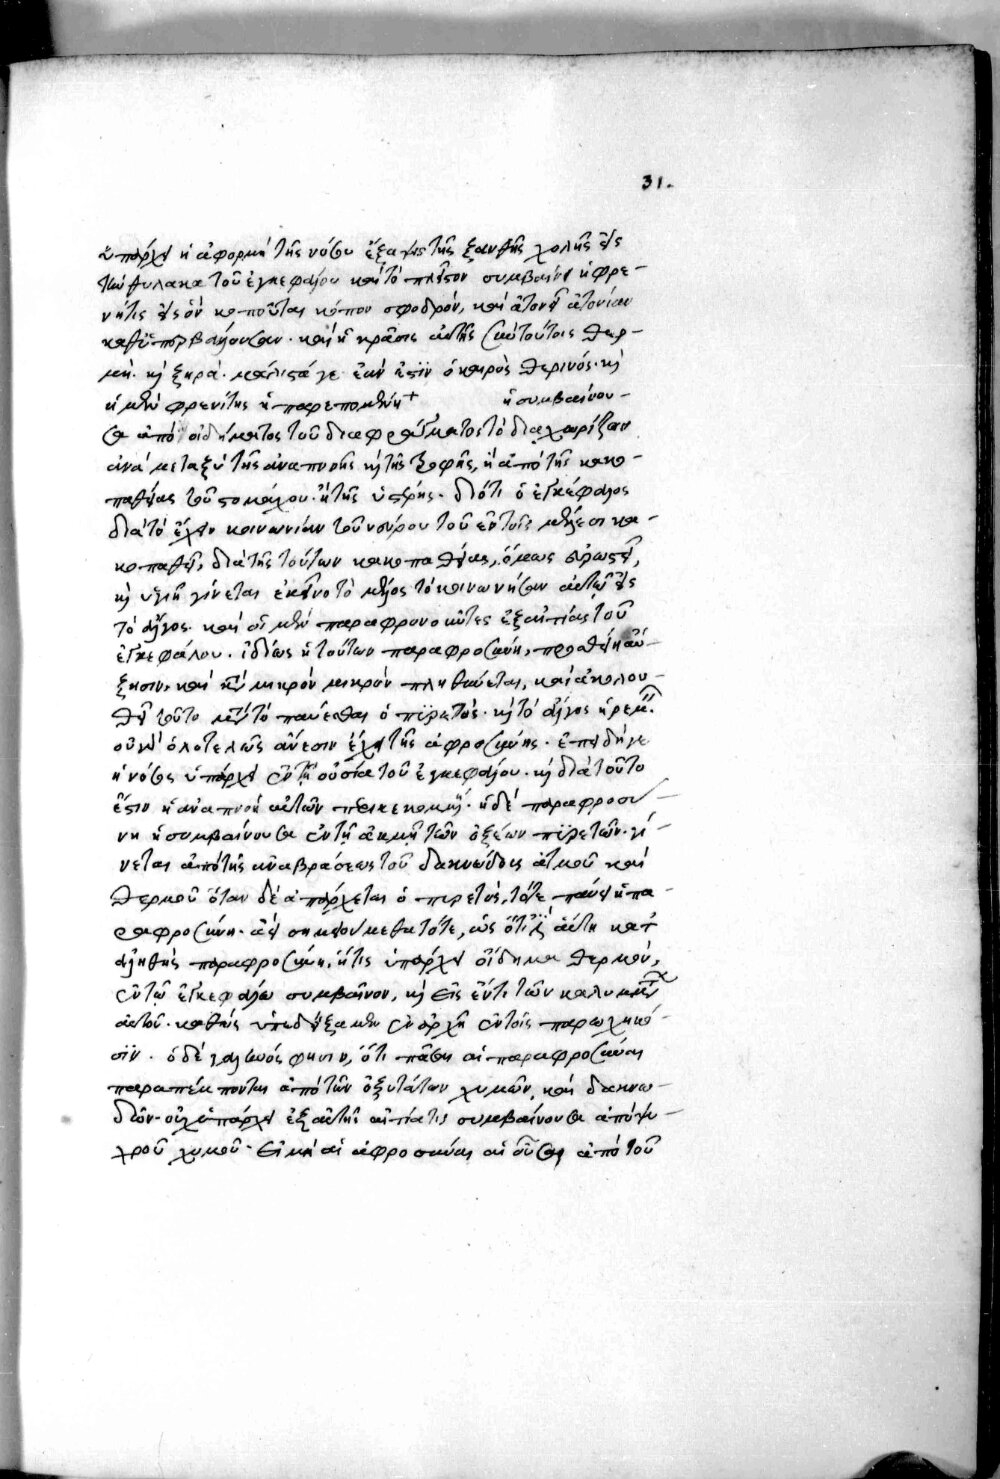 31.
ὑπάρχει ἡ ἀφορμὴ τῆς νόσου ἐξ αἰτίας τῆς ξανθῆς χολῆς εἰς
τὸν θύλακα τοῦ ἐγκεφάλου καὶ τὸ πλεῖστον συμβαίνει ἡ φρε-
νῖτις εἰς ὃν κοποῦται κόπον σφοδρόν, καὶ ἀτονεῖ ἀτονίαν
καθ' ὑπερβάλουσαν. καὶ ἡ κρᾶσις αὐτῆς θερ-
μή. κỳ ξηρά. μάλιστά γε ἐὰν ἐστὶν ὁ καιρὸς θερινός. κỳ
ἡ μὲν φρενίτης ἡ παρεπομένη + ἡ συμβαίνου-
σα ἀπὸ οἰδήματος τοῦ διαφράγματος τὸ διαχωρίζον
ἀνὰ μεταξὺ τῆς ἀναπνοῆς κỳ τῆς τροφῆς, ἢ ἀπὸ τῆς κακο-
παθείας τοῦ στομάχου. ἢ τῆς ὑστέρης. διότι ὁ ἐγκέφαλος
διὰ τὸ ἔχειν κοινωνίαν τοῦ νεύρου τοῦ ἐν τοῖς μέλεσι κα-
κοπαθεῖ, διὰ τῆς τούτων κακοπαθείας, ὅμως
κỳ ὑγιῆ γίνεται ἐκεῖνο τὸ μέλος τὸ κοινωνῆσαν αὐτῷ εἰς
τὸ ἄλγος. καὶ οἱ μὲν παραφρονοῦντες ἐξ αἰτίας τοῦ
ἐγκεφάλου. ἰδίως ἡ τούτων παραφροσύνη, προσθείη αὔ-
ξησιν, καὶ μικρὸν μικρὸν πληθύνεται, καὶ ἀκολου-
θεῖ τοῦτο μετὰ τὸ παύεσθαι ὁ πυρετός. κỳ τὸ ἄλγος ἠρεμεῖ.
οὐχ' ὁλοτελῶς ἄνεσιν ἔχει τῆς ἀφροσύνης. ἐπειδήγε
ἡ νόσος ὑπάρχει ἐν τῇ οὐσίᾳ τοῦ ἐγκεφάλου. κỳ διὰ τοῦτο
ἐστὶν ἡ ἀναπνοὴ αὐτῶν ἡ δὲ παραφροσύ-
νη ἡ συμβαίνουσα ἐν τῇ ἀκμῇ τῶν ὀξέων πυρετῶν. γί-
νεται ἀπὸ τῆς ἀναβράσεως τοῦ δακνώδους ἀτμοῦ καὶ
θερμοῦ ὅταν δὲ ἀπάρχεται ὁ πυρετός, τότε παύει ἡ πα-
ραφροσύνη. τότε, ὡς ὅτι αὕτη
ἀληθὴς παραφροσύνη, ἥτις ὑπάρχει οἴδημα θερμόν,
ἐν τῷ ἐγκεφάλῳ συμβαῖνον, κỳ εἰς ἕν τι τῶν καλυμμάτων
αὐτοῦ. καθὼς ὑπεδείξαμεν ἐν ἀρχῇ ἐν τοῖς παρῳχηκό-
σιν. ὁ δὲ γαληνός φησιν, ὅτι πᾶσαι αἱ παραφροσύναι
παραπέμπονται ἀπὸ τῶν ὀξυτάτων χυμῶν, καὶ δακνω-
δῶν. οὐχ ὑπάρχει ἐξ αὐτῆς αἰτίας συμβαίνουσα ἀπὸ ψυ-
χροῦ χυμοῦ. εἰ μὴ αἱ ἀφροσύναι αἱ οὖσαι ἀπὸ τοῦ